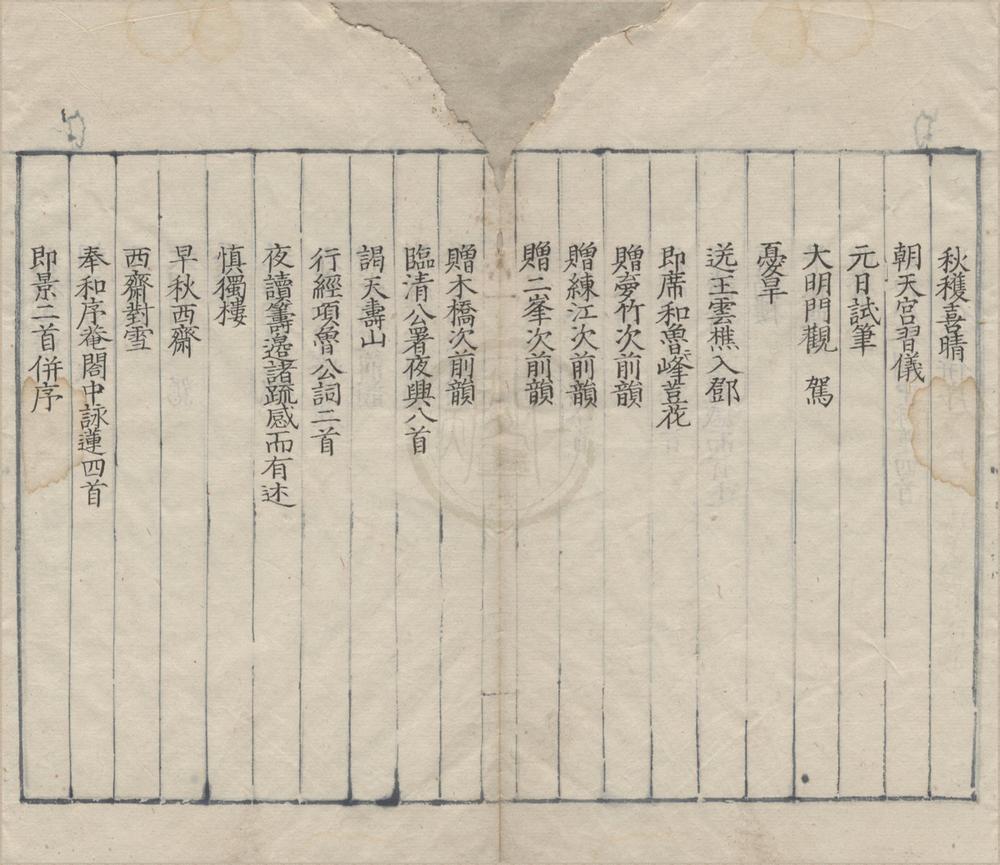 秋穫喜晴
朝天宮習儀
元日試筆
大明門觀　駕
憂旱
送王雲樵入鄧
即席和魯峰荳花
贈夢竹次前韻
贈練江次前韻
贈二峯次前韻
贈木橋次前韻
臨清公署夜興八首
謁天壽山
行經項魯公詞二首
夜讀籌邊諸疏感而有述
慎獨樓
早秋西齋
西齋對雪
奉和序菴閣中詠蓮四首
即景二首併序